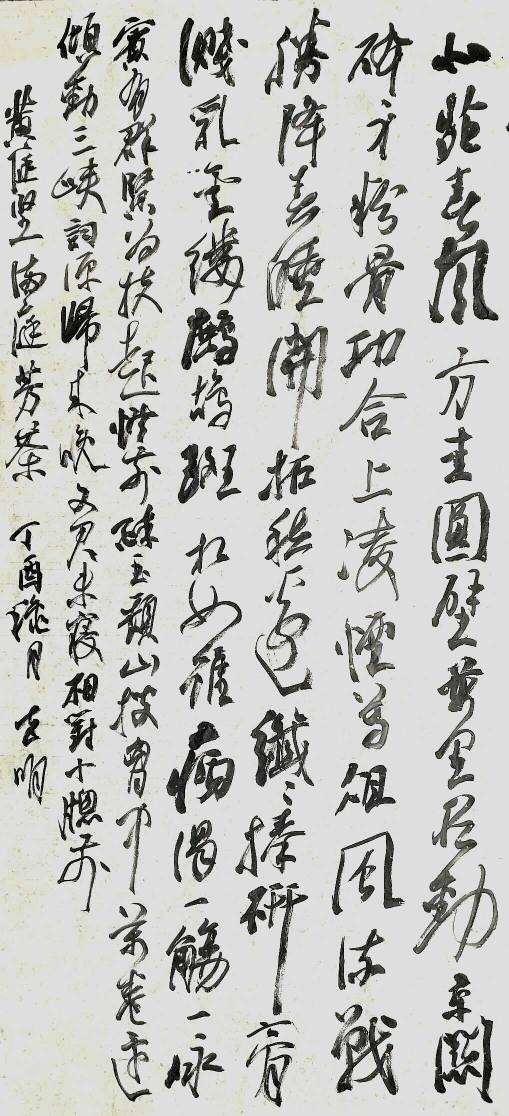 北苑春風方圭圓璧萬里名動京關
碎身粉骨功合上凌煙尊俎風流戰
勝降春睡開拓愁邊纖〻捧研膏
濺乳金縷鷓鴣斑相如雖病渴一觴一詠
賓有群賢為扶起燈前醉玉頹山搜胸中萬卷還
傾動三峽詞源歸來晚文君未寢相對小牕前
黃庭堅滿庭芳茶 丁酉月明